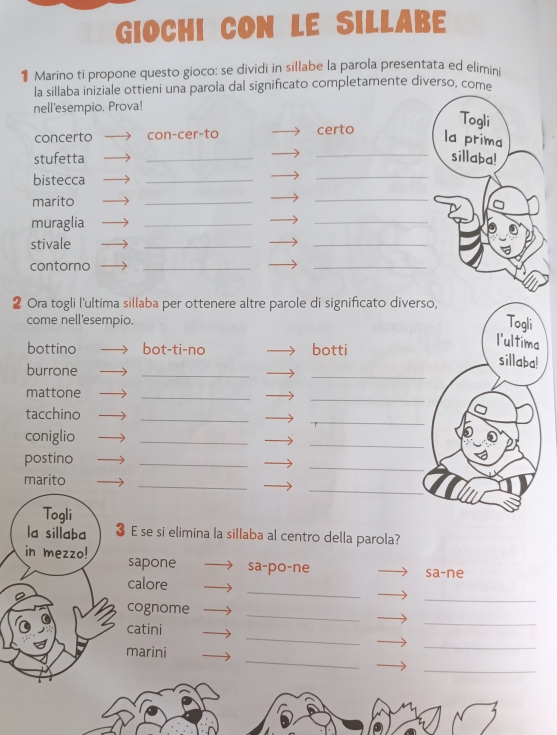 GIOCHI CON LE SILLABE
1 Marino ti propone questo gioco: se dividi in sillabe la parola presentata ed elimini
la sillaba iniziale ottieni una parola dal significato completamente diverso, come
nell'esempio. Prova!
Togli
la prima
sillaba!
concerto → con-cer-to → certo
stufetta → →
bistecca → →
marito → →
muraglia → →
stivale → →
contorno → →
2 Ora togli l'ultima sillaba per ottenere altre parole di significato diverso,
come nell'esempio.
Togli
l'ultima
sillaba!
bottino → bot-ti-no → botti
burrone → →
mattone → →
tacchino → →
coniglio → →
postino → →
marito → →
Togli
la sillaba
in mezzo!
3 E se si elimina la sillaba al centro della parola?
sapone → sa-po-ne → sa-ne
calore → →
cognome → →
catini → →
marini → →